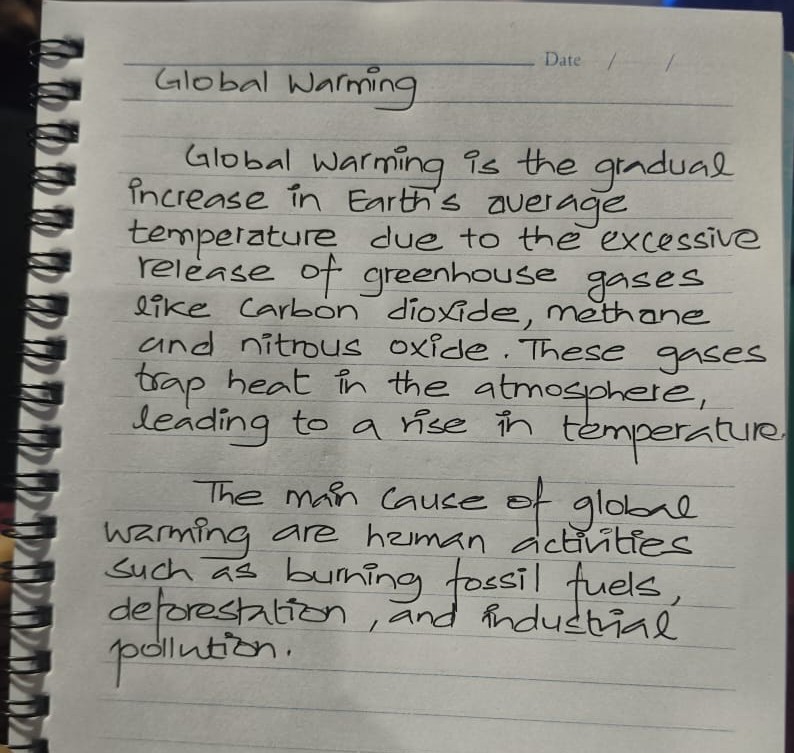 Date / /
Global Warming
Global Warming is the gradual
increase in Earth's average
temperature due to the excessive
release of greenhouse gases
like carbon dioxide, methane
and nitrous oxide. These gases
trap heat in the atmosphere,
leading to a rise in temperature.
The main cause of global
warming are human activities
such as burning fossil fuels,
deforestation, and industrial
pollution.